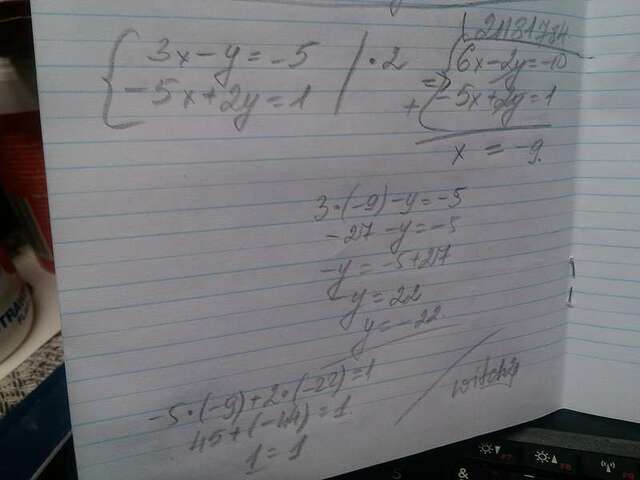 3x-y=-5 | ·2
-5x+2y=1
=> 6x-2y=-10
+ -5x+2y=1
x = -9
3·(-9)-y=-5
-27-y=-5
-y=-5+27
-y=22
y=-22
-5·(-9)+2·(-22)=1
45+(-44)=1
1=1